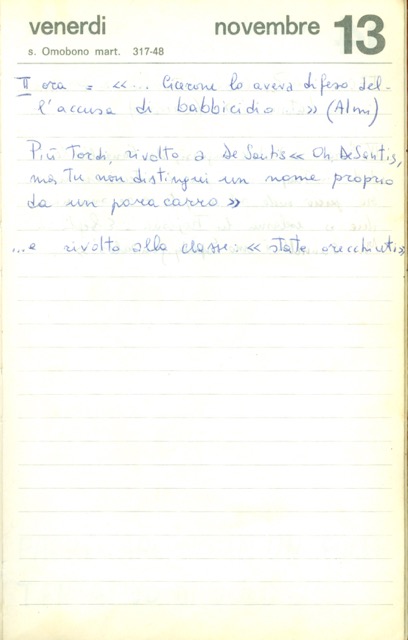 venerdi novembre 13
s. Omobono mart. 317-48
II ora = «... Cicerone lo aveva difeso del-
l'accusa di babbicidio » (Alm)
Più Tordi, rivolto a De Santis « Oh, De Santis,
ma tu non distingui un nome proprio
da un paracarro »
...e rivolto alla classe: « state orecchiuti»